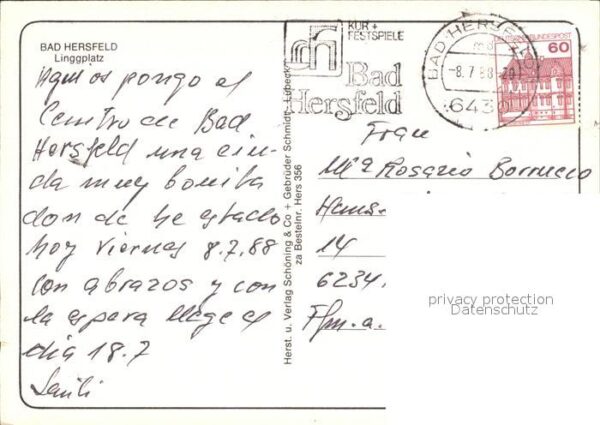 BAD HERSFELD
Linggplatz
Aqui os pongo el
Centro de Bad
Hersfeld una ciu-
da muy bonita
don de he estado
hoy Viernes 8.7.88
con abrazos y con
la espera llege el
dia 18.7
Herst. u. Verlag Schöning & Co + Gebrüder Schmidt, Lübeck
za Bestelnr. Hers 356
KUR +
FESTSPIELE
Bad
Hersfeld
BAD HERSFELD
-8.7.88-20
6430
DEUTSCHE BUNDESPOST
60
Frau
Mª Rosario Borrueco
Hans-
14
6234
Ffm. a.
privacy protection
Datenschutz